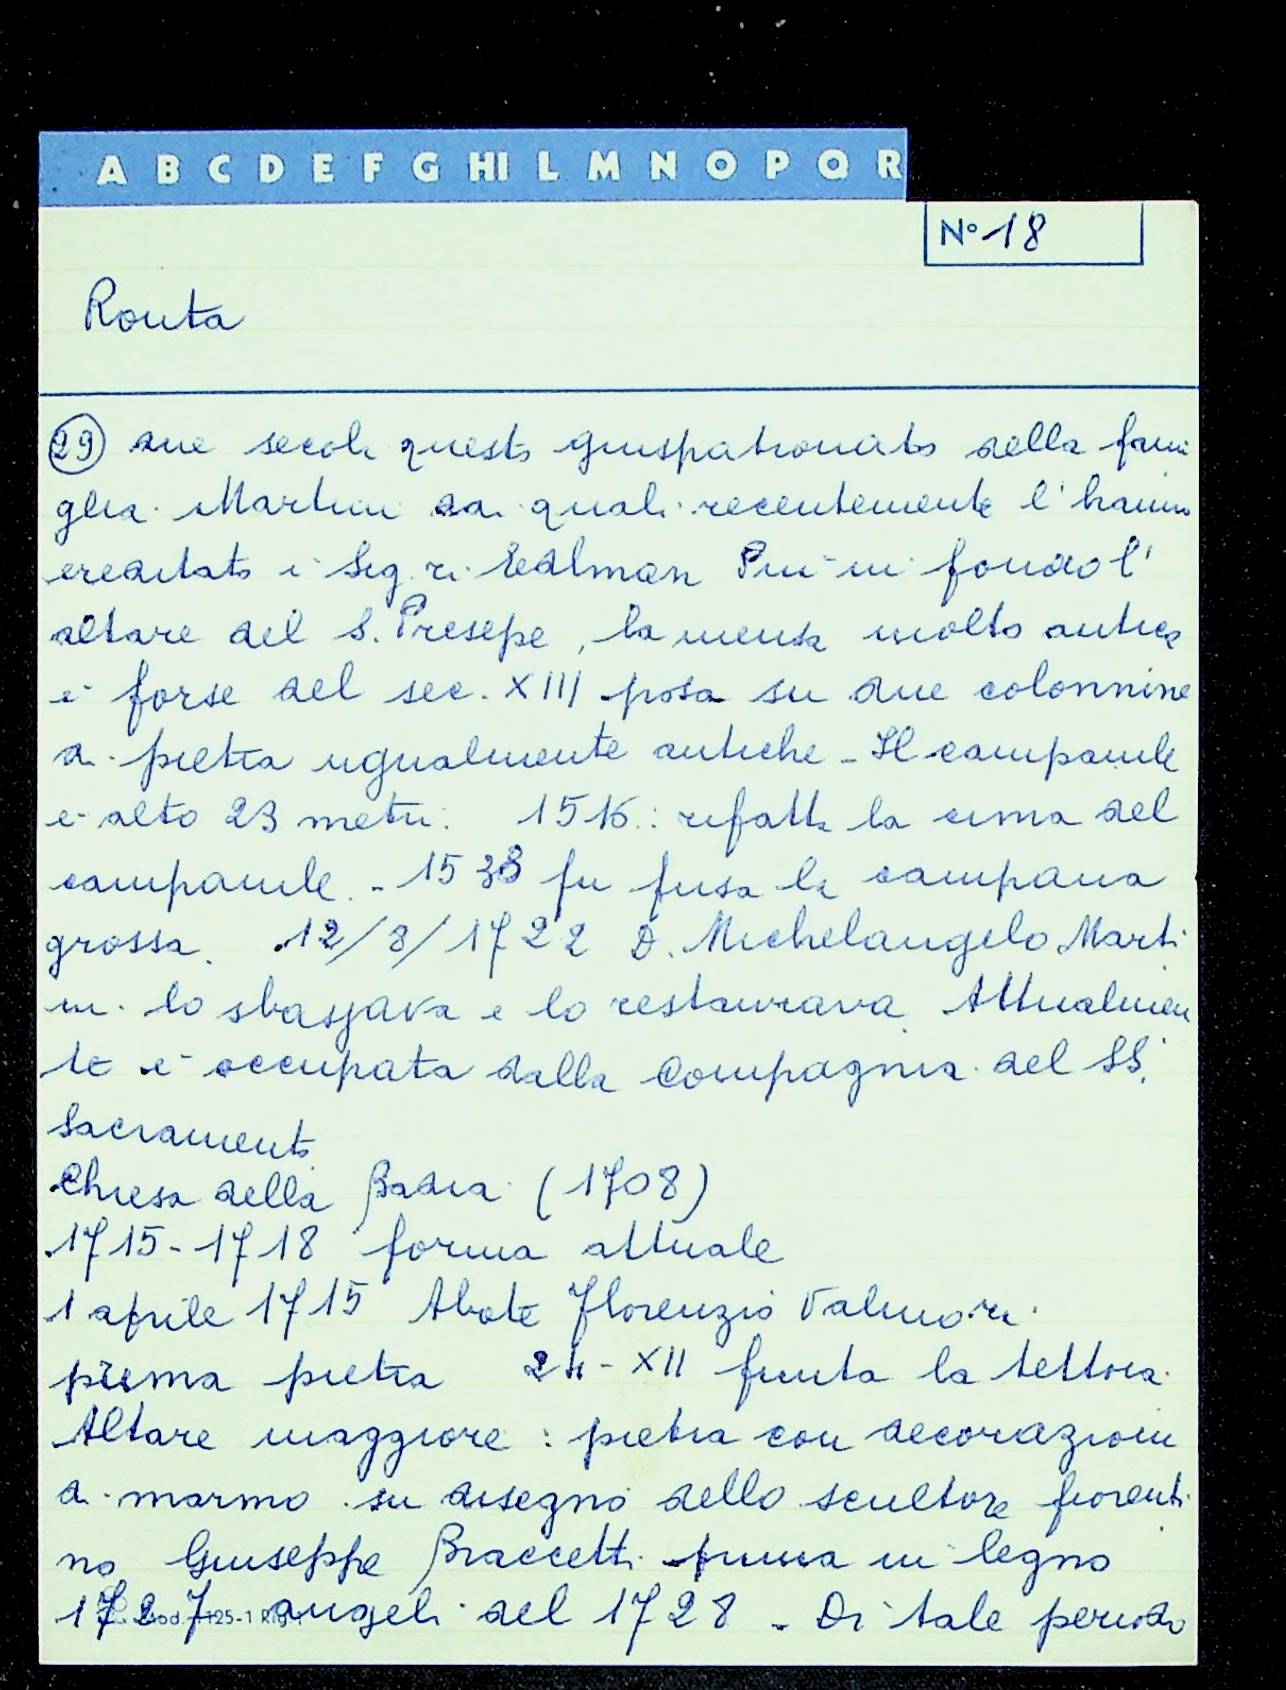 A B C D E F G HI L M N O P Q R
N° 18
Routa
29 due secoli questo giuspatronato della fami
glia Martini dai quali recentemente l'hanno
ereditato i Sig.ri Edlman Più in fondo l'
altare del S. Presepe, la mensa molto antica
è forse del sec. XIII posa su due colonnine
di pietra ugualmente antiche - Il campanile
è alto 23 metri. 1516: rifatta la cima del
campanile. - 1538 fu fusa la campana
grossa. 12/8/1722 D. Michelangelo Marti
ni lo sbassava e lo restaurava. Attualmen
te è occupata dalla Compagnia del SS.
Sacramento
Chiesa della Badia (1708)
1715-1718 forma attuale
1 aprile 1715 Abate Florenzio Valmori
prima pietra 24-XII finita la tettoia
Altare maggiore: pietra con decorazioni
di marmo su disegno dello scultore fiorenti
no Giuseppe Braccetti prima in legno
1727 angeli del 1728 - Di tale periodo